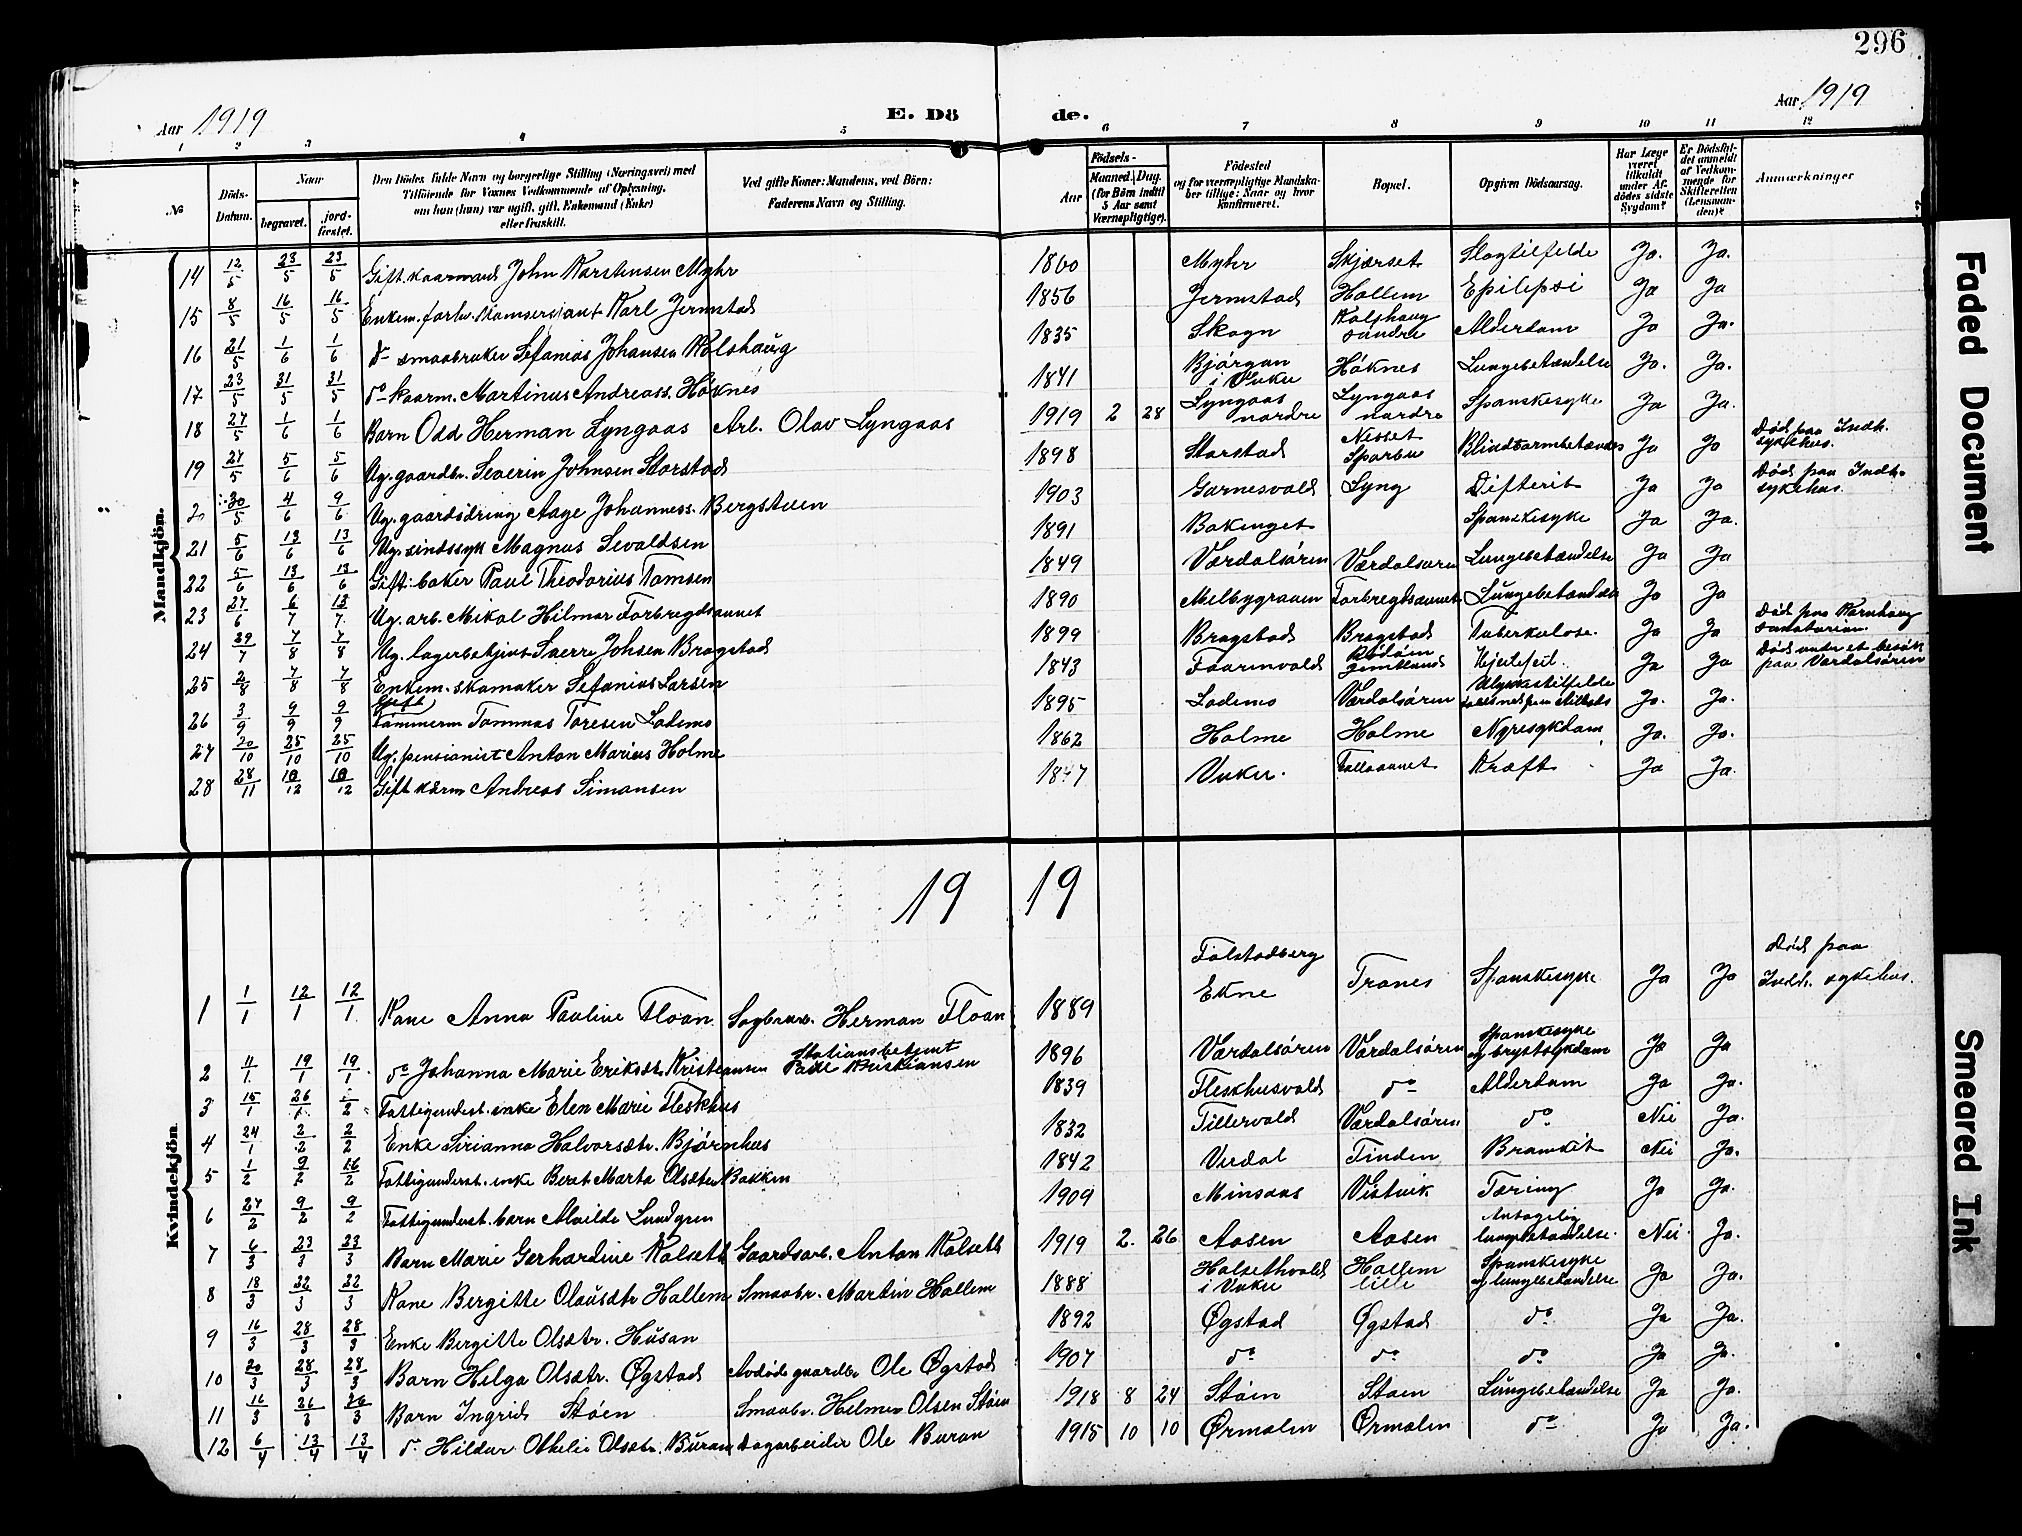 296
Aar 1919
E. Dö
de.
Aar 1919
1 2 3 4 5 6 7 8 9 10 11 12
No
Döds-Datum.
Naar
begravet.
jord-fæstet.
Den Dödes fulde Navn og borgerlige Stilling (Næringsvei) med
Tilföiende for Voxnes Vedkommende af Oplysning,
om han (hun) var ugift, gift, Enkemand (Enke)
eller fraskilt.
Ved gifte Koner: Mandens, ved Börn:
Faderens Navn og Stilling.
Födsels-
Aar
Maaned. Dag.
(for Börn indtil
5 Aar samt
Værnepligtige).
Födested
og for værnepligtige Mandska-
ber tillige: Naar og hvor
konfirmeret.
Bopæl.
Opgiven Dödsaarsag.
Har Læge
været
tilkaldt
under Af-
dödes sidste
Sygdom?
Er Dödsfal-
det anmeldt
af Vedkom-
mende for
Skifteretten
(Lensman-
den)?
Anmærkninger
Mandkjön.
14 12/5 23/5 23/5 Gift kaarmand John Karstensen Myhr 1860 Myhr Skjærset Slagtilfelde Ja. Ja.
15 8/5 16/5 16/5 Enkem. forhv. Karl Jermstad 1856 Jermstad Hallem Epilepsi Ja Ja
16 21/5 1/6 1/6 do smaabruker Sefanias Johansen Kolshaug 1835 Skogn Kolshaug søndre Alderdom Ja Ja.
17 23/5 31/5 31/5 do kaarm. Martinus Andreass. Høknes 1841 Bjørgan i Vuku Høknes Lungebetændelse Ja. Ja.
18 27/5 1/6 1/6 Barn Odd Herman Lyngaas Arb. Olav Lyngaas 1919 2 28 Lyngaas nordre Lyngaas nordre Spanskesyke Ja Ja.
19 27/5 5/6 5/6 Ug. gaardbr. Severin Johnsen Storstad 1898 Storstad Nesset Sparbu Blindtarmbetændels Ja Ja Død paa Indh. sykehus.
20 30/5 4/6 9/6 Ug. gaardsdreng Aage Johanness. Bergsteen 1903 Garnesvald Lyng Difterit Ja Ja Død paa Indh. sykehus.
21 5/6 13/6 13/6 Ug. sindssyk Magnus Sevaldsen 1891 Bakenget Spanskesyke Ja Ja.
22 5/6 13/6 13/6 Gift: baker Paul Theodorius Tomsen 1849 Værdalsøren Værdalsøren Lungebetændelse Ja Ja
23 27/6 6/7 13/7 Ug. arb. Mikal Hilmar Forbregdsaunet 1890 Melbygrauen Forbregdsaunet Lungebetændelse Ja Ja
24 29/7 7/8 7/8 Ug. lagerbetjent Sverre Johsen Bragstad 1899 Bragstad Bragstad Tuberkulose. Ja Ja Død paa Kornhaug sanatorium.
25 2/8 7/8 7/8 Enkem. skomaker Sefanias Larsen 1843 Faarenvald Rödöen Jemtland Hjertefeil. Ja Ja Død under et besøk paa Værdalsøren
26 3/9 9/9 9/9 Gift Tømmerm Tommas Toresen Lademo 1895 Lademo Værdalsøren Ulykkestilfelde Ja. Ja.
27 20/10 25/10 25/10 Ug. pensionist Anton Marius Holme 1862 Holme Holme Nyresykdom Ja. Ja.
28 28/11 10/12 10/12 Gift kårm Andreas Simonsen 1847 Vuku. Kræft Ja Ja.
19 19
Kvindekjön
1 1/1 12/1 12/1 Kone Anna Pauline Floan Sagbruarb. Herman Floan 1889 Falstadberg Ekne Trones Spanskesyke Ja Ja Død paa Indh. sykehus.
2 11/1. 19/1 19/1. do Johanna Marie Eriksdt. Kristiansen Stationsbetjent Paul Kristiansen 1896 Værdalsøren Værdalsøren Spanskesyke og brystsykdom Ja Ja
3 15/1 26/1 2/2 Fattigunderst. enke Elen Marie Fleskhus 1839 Fleskhusvald do Alderdom Ja Ja.
4 24/1 2/2 2/2 Enke Sirianna Halvorsdtr. Bjørnhus 1832 Tillervald Værdalsøren do Nei Ja.
5 1/2 9/2 16/2 Fattigunderst. enke Berat Marta Olsdtr Bakken 1842 Verdal Tinden Bronkit Nei Ja.
6 27/2 9/2 9/2 Fattigunderst. barn Alvilde Lundgren 1909 Minsaas Vistvik Tæring Ja Ja.
7 6/3 23/3 23/3 Barn Marie Gerhardine Kolseth Gaardsarb. Anton Kolseth 1919 2. 26 Aasen Aasen Antagelig lungebetændelse. Nei. Ja.
8 18/3 22/3 22/3 Kone Bergitte Olausdtr Hallem Smaabr. Martin Hallem 1888 Halsethvald i Vuku Hallem lille Spanskesyke og lungebetændelse Ja Ja.
9 16/3 28/3 28/3 Enke Bergitte Olsdtr. Husan 1892 Øgstad Øgstad do Ja Ja.
10 20/3 28/3 28/3 Barn Helga Olsdtr. Øgstad Avdøde gaardbr Ole Øgstad 1907 do do do Ja Ja.
11 16/3 26/3 26/3 Barn Ingrid Støen Smaabr. Helmer Olsen Støen 1918 8 24 Støen Støen Lungebetændelse Ja Ja.
12 6/4 13/4 13/4 do Hildur Othelie Olsdtr. Buran Dagarbeider Ole Buran 1915 10 10 Ørmelen Ørmelen do Ja Ja.
Faded Document
Smeared Ink